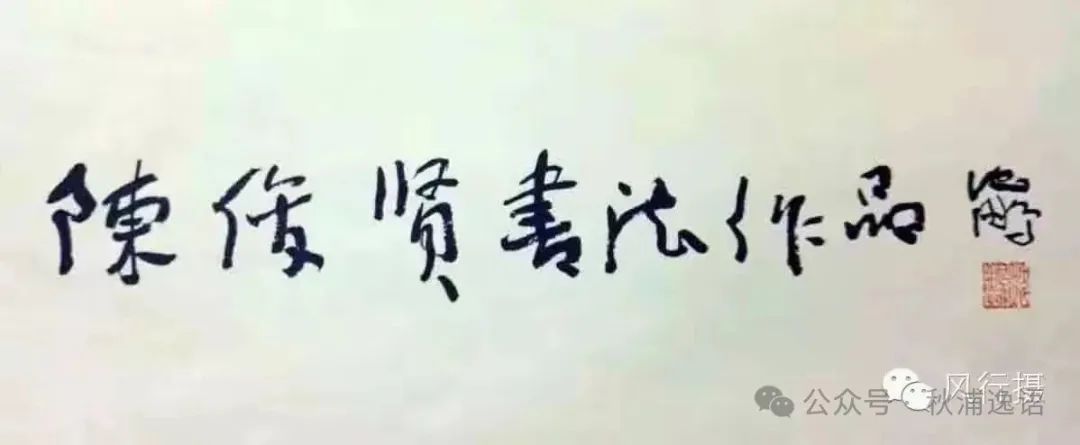 陳俊贤書法作品
风行摄
公众号·秋浦逸语